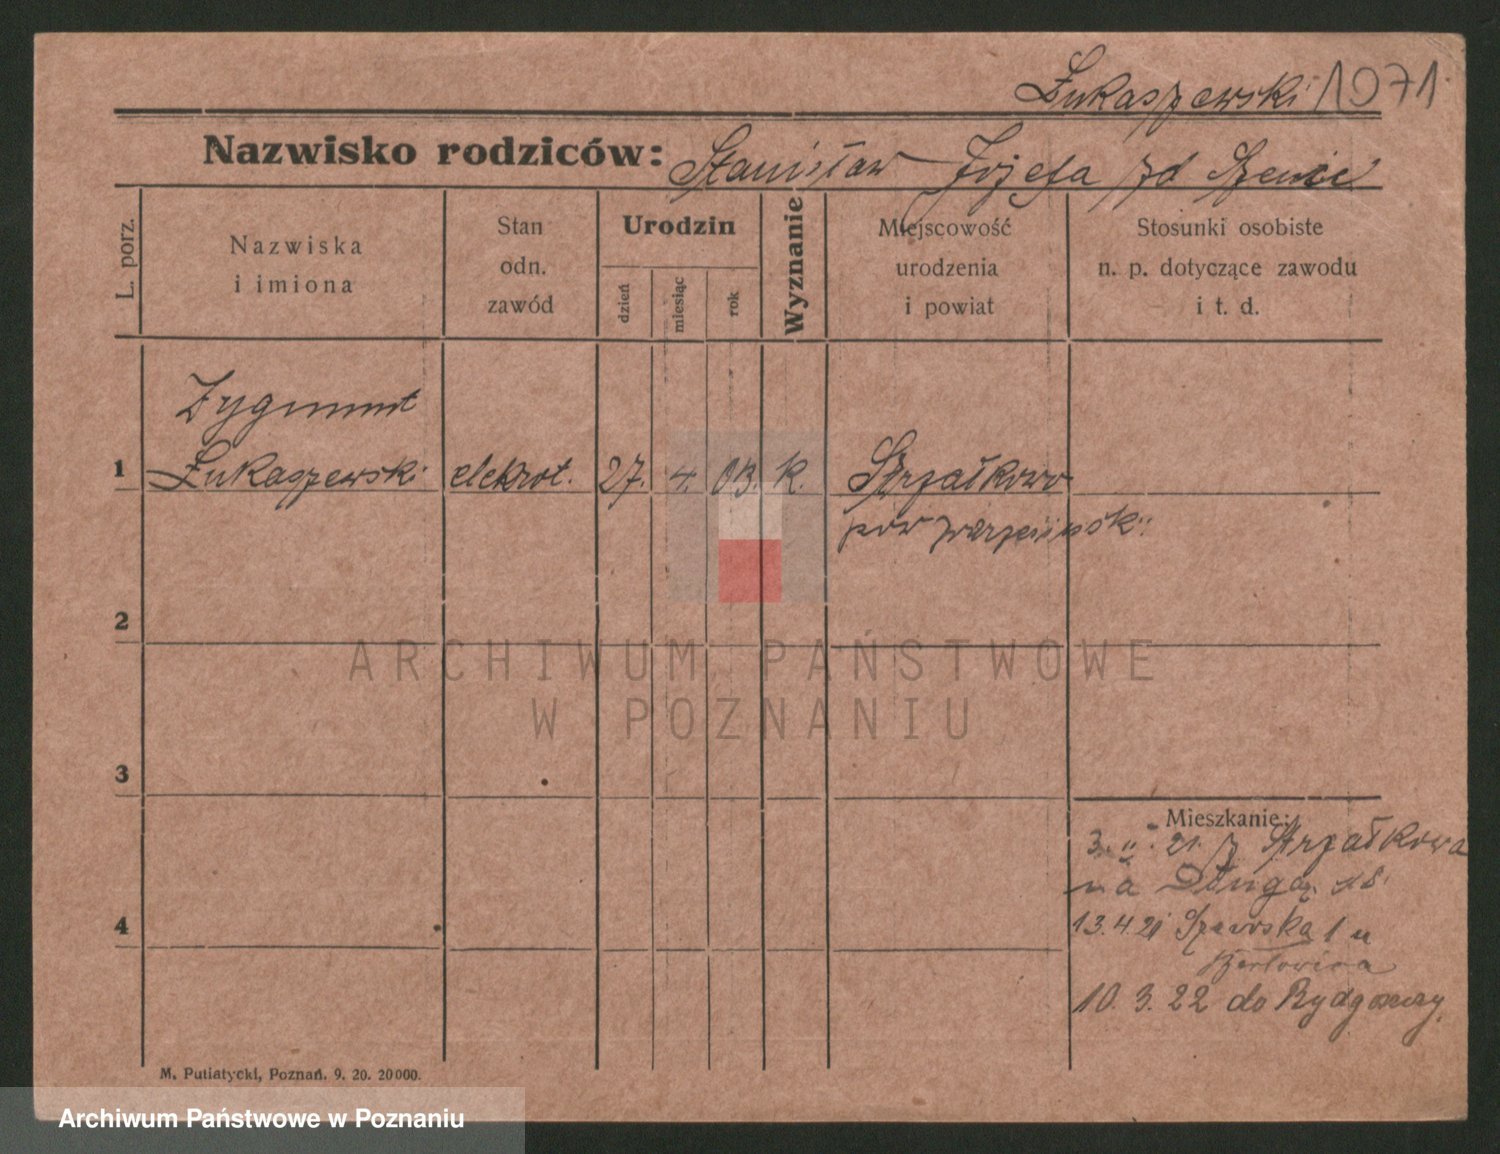 Łukaszewski 1971
Nazwisko rodziców: Stanisław Józefa zd
L. porz.
Nazwiska
i imiona
Stan
odn.
zawód
Urodzin
dzień
miesiąc
rok
Wyznanie
Miejscowość
urodzenia
i powiat
Stosunki osobiste
n. p. dotyczące zawodu
i t. d.
Zygmunt
1 Łukaszewski elektrot. 27. 4. 03. k. Strzałkowo
pow
2
ARCHIWUM PAŃSTWOWE
W POZNANIU
3
Mieszkanie:
3. II. 21. z Strzałkowa
na Długą 18.
4
13.4.21 Szewska 1 u
10. 3. 22 do Bydgoszczy.
M. Putiatycki, Poznań. 9. 20. 20000.
Archiwum Państwowe w Poznaniu